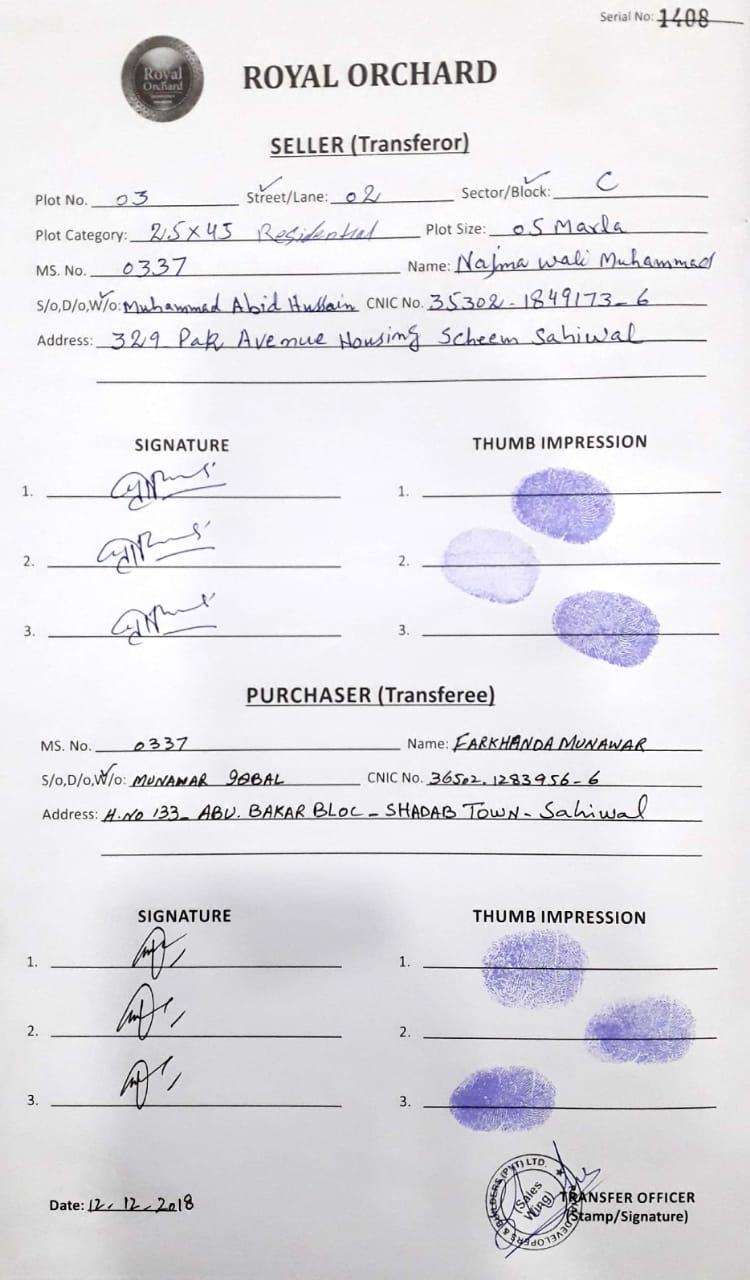 Serial No: 1408
Royal
Orchard
ROYAL ORCHARD
SELLER (Transferor)
Plot No. 03 Street/Lane: 02 Sector/Block: C
Plot Category: 25x45 Residential Plot Size: 05 Marla
MS. No. 0337 Name: Najma Wali Muhammad
S/o,D/o,W/o: Muhammad Abid Hussain CNIC No. 35302-1849173-6
Address: 329 Pak Avenue Housing Scheem Sahiwal
SIGNATURE THUMB IMPRESSION
1. 1.
2. 2.
3. 3.
PURCHASER (Transferee)
MS. No. 0337 Name: FARKHANDA MUNAWAR
S/o,D/o,W/o: MUNAWAR IQBAL CNIC No. 36502.1283956-6
Address: H.NO 133- ABU. BAKAR BLOC- SHADAB TOWN- Sahiwal
SIGNATURE THUMB IMPRESSION
1. 1.
2. 2.
3. 3.
DEVELOPERS & BUILDERS (PVT) LTD.
(Sales
Wing)
Date: 12.12.2018 TRANSFER OFFICER
(Stamp/Signature)